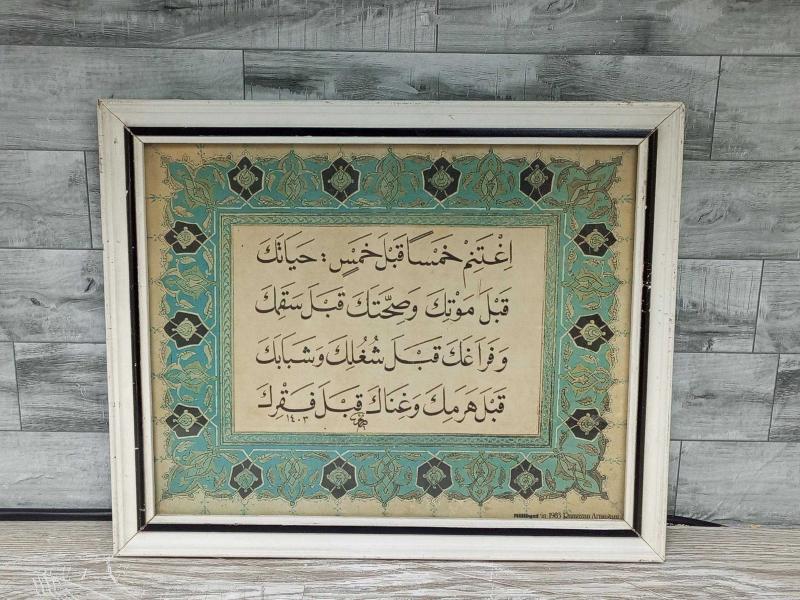 اِغْتَنِمْ خَمْسًا قَبْلَ خَمْسٍ : حَيَاتَكَ
قَبْلَ مَوْتِكَ وَصِحَّتَكَ قَبْلَ سَقَمِكَ
وَفَرَاغَكَ قَبْلَ شُغْلِكَ وَشَبَابَكَ
قَبْلَ هَرَمِكَ وَغِنَاكَ قَبْلَ فَقْرِكَ
١٤٠٣
Milliyet 'in 1983 Ramazan Armağanı